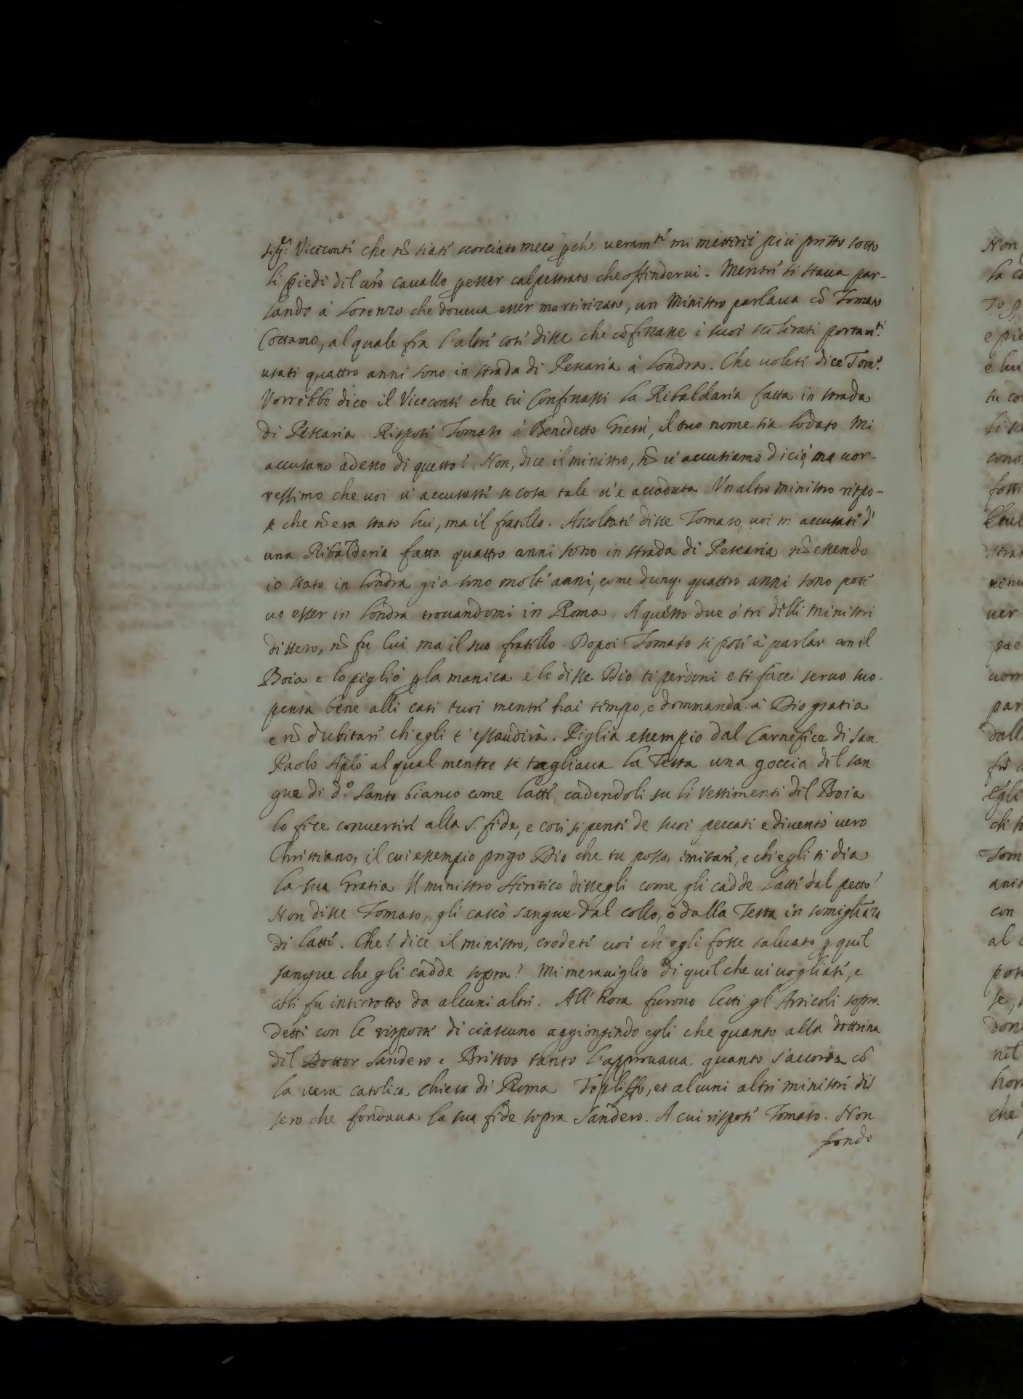 Sig.r Viceconti che nõ siati scorciato meco pche veram.te mi mettirii piu prosto sotto
li piedi dil vrõ cavallo p esser calpestrato che offindervi. Mentri si stava par-
lando á Lorenzo che doveva esser martirizato, un Ministro parlava cõ Tomaso
Cottamo, al quale fra l'altri cosi disse che cõfessasse i suoi portam.ti
usati quattro anni sono in strada di Pescaria á Londra. Che voleti dice Tom.o
Vorrebbe dice il Viceconti che tu Confessassi la Ribaldaria fatta in strada
di Pescaria Risposi Tomaso ó Benedetto Giesú, il tuo nome sia lodato. Mi
accusano adesso di questo! Non, dice il ministro, nõ v'accusiamo di ció, ma vor-
ressimo che voi v'accusassi se cosa tale v'e accaduta. Vn altro ministro rispo-
se che nõ era stato lui, ma il fratello. Ascoltati disse Tomaso, voi m'accusati d'
una Ribalderia fatta quattro anni sono in strada di Pescaria nõ essendo
io stato in Londra gia sono molti anni, come dunq. quattro anni sono poti
vo esser in Londra trovandomi in Roma. A questo due ó tri delli ministri
dissero, nõ fu lui, ma il suo fratello. Dopoi Tomaso si posi á parlar con il
Boia e lo pigliò p la manica e le disse Dio ti perdoni e ti facci servo suo.
pensa bene alli casi tuoi mentri hai tempo, e dommanda á Dio gratia
e nõ dubitari ch'egli t'essaudirà. Piglia essempio dal Carnefice di San
Paolo Aplõ al qual mentre se tagliava la Testa una goccia dil san
gue di d.o Santo bianco come latti, cadendoli su li vestimenti dil Boia
lo fice convertiri alla S. fide, e cosi si penti de suoi peccati e diventò vero
Christiano, il cui essempio prigo Dio che tu possa imitari, e ch'egli ti dia
la sua Gratia Il ministro Hiritico dissegli come gli cadde latti dal petto?
Non disse Tomaso, gli cascò sangue dal collo, ò dalla Testa in somiglianza
di latti. Che! dice il ministro, credeti voi ch'egli fosse salvato p quil
sangue che gli cadde sopra? Mi meraviglio di quil che vi vogliati, e
cosi fu interrotto da alcuni altri. All'hora furono letti gl'Articoli sopra
detti con le risposti di ciascuno aggiongendo egli che quanto alla dottrina
dil Dottor Sandero e Bristoo tanto l'approvava quanto s'accorda cõ
la vera catolica Chiesa di Roma Topcliffo, et alcuni altri ministri dis
sero che fondava la sua fide sopra Sandero. A cui risposi Tomaso. Non
fondo